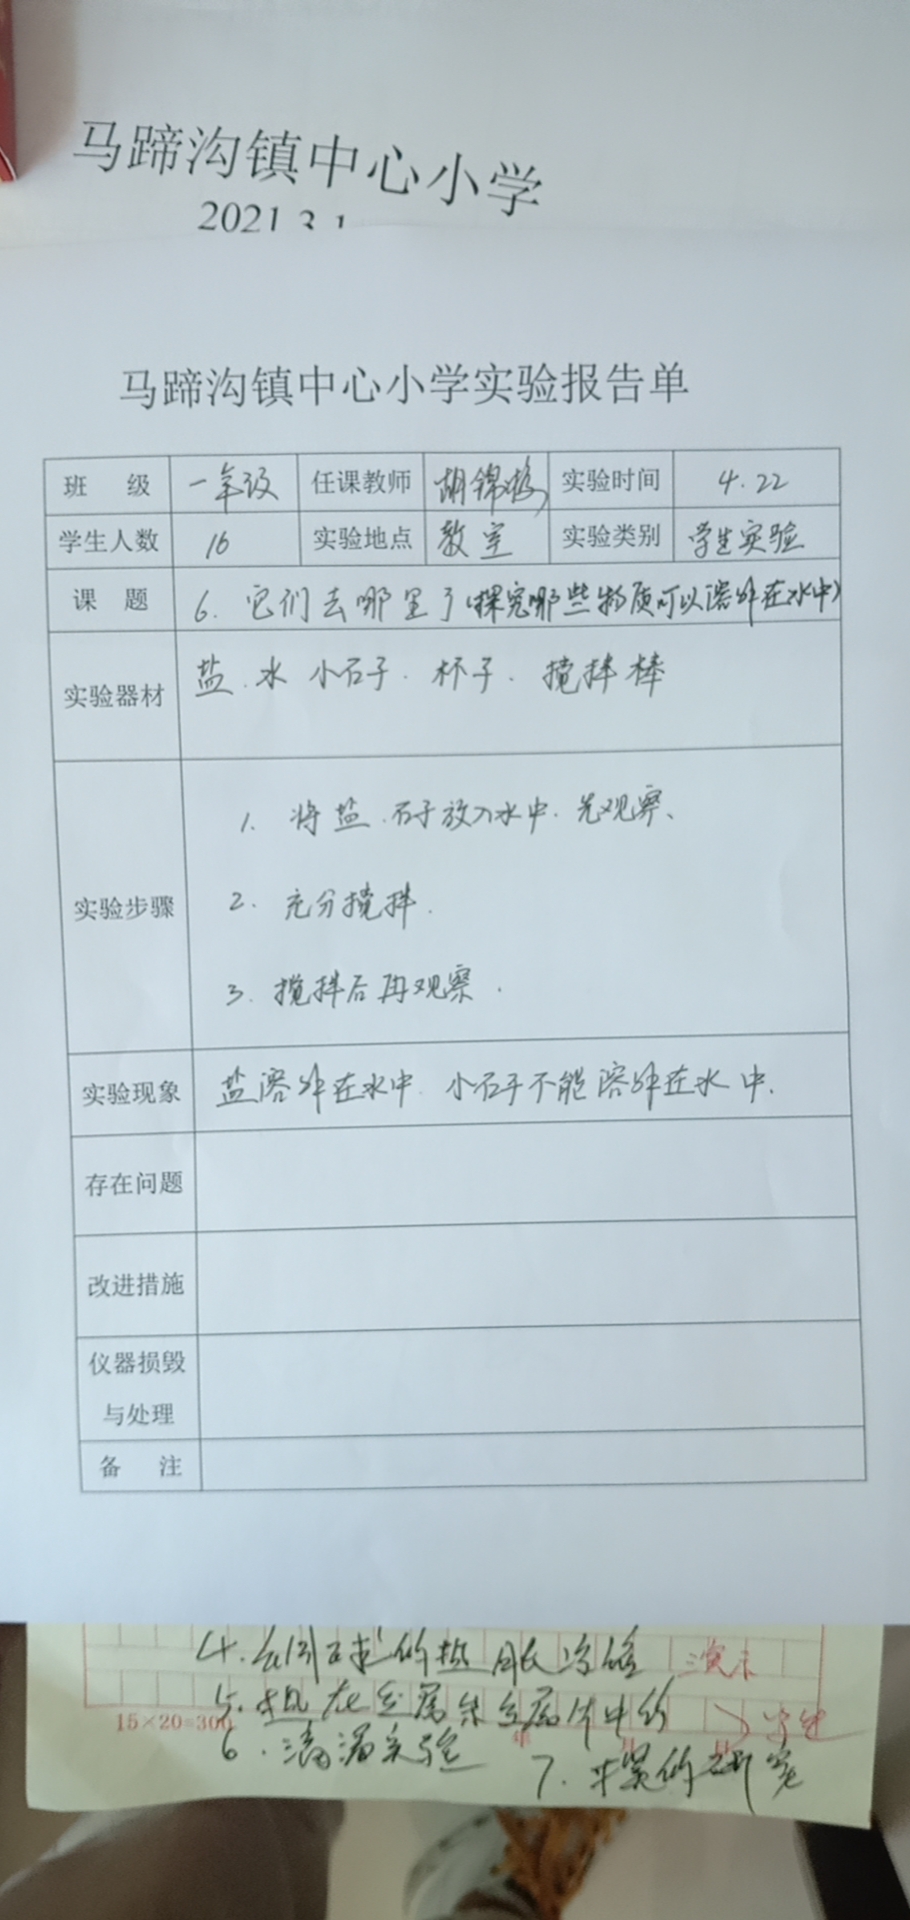 马蹄沟镇中心小学
2021.3.1
马蹄沟镇中心小学实验报告单
班 级 一年级 任课教师 胡锦 实验时间 4.22
学生人数 16 实验地点 教室 实验类别 学生实验
课 题 6. 它们去哪里了(探究哪些物质可以溶解在水中)
实验器材 盐.水 小石子. 杯子. 搅拌棒
实验步骤
1. 将盐.石子放入水中.先观察、
2. 充分搅拌.
3. 搅拌后再观察.
实验现象 盐溶解在水中.小石子不能溶解在水中.
存在问题
改进措施
仪器损毁
与处理
备 注
4. 的热胀冷缩 演示
5. 热在金属条金属片中的
15×20=300
6. 滴漏实验
7. 摆的研究